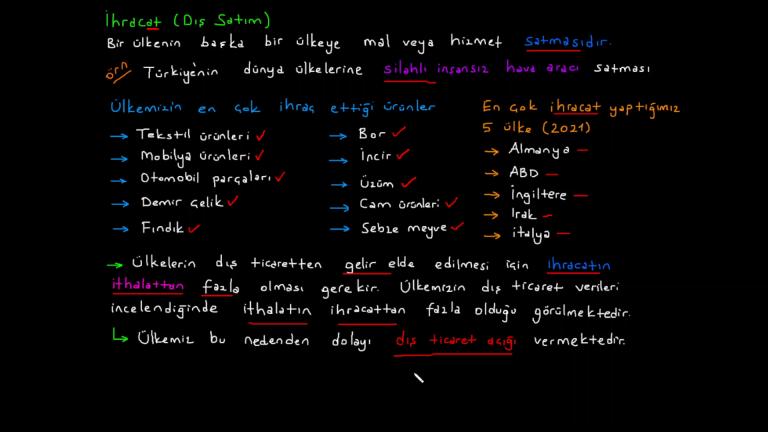 İhracat (Dış Satım)
Bir ülkenin başka bir ülkeye mal veya hizmet satmasıdır.
örn Türkiye'nin dünya ülkelerine silahlı insansız hava aracı satması
Ülkemizin en çok ihraç ettiği ürünler
→ Tekstil ürünleri ✓
→ Mobilya ürünleri ✓
→ Otomobil parçaları ✓
→ Demir çelik ✓
→ Fındık ✓
→ Bor ✓
→ İncir ✓
→ Üzüm ✓
→ Cam ürünleri ✓
→ Sebze meyve ✓
En çok ihracat yaptığımız
5 ülke (2021)
→ Almanya
→ ABD
→ İngiltere
→ Irak
→ italya
→ Ülkelerin dış ticaretten gelir elde edilmesi için ihracatın
ithalattan fazla olması gerekir. Ülkemizin dış ticaret verileri
incelendiğinde ithalatın ihracattan fazla olduğu görülmektedir.
↳ Ülkemiz bu nedenden dolayı dış ticaret açığı vermektedir.